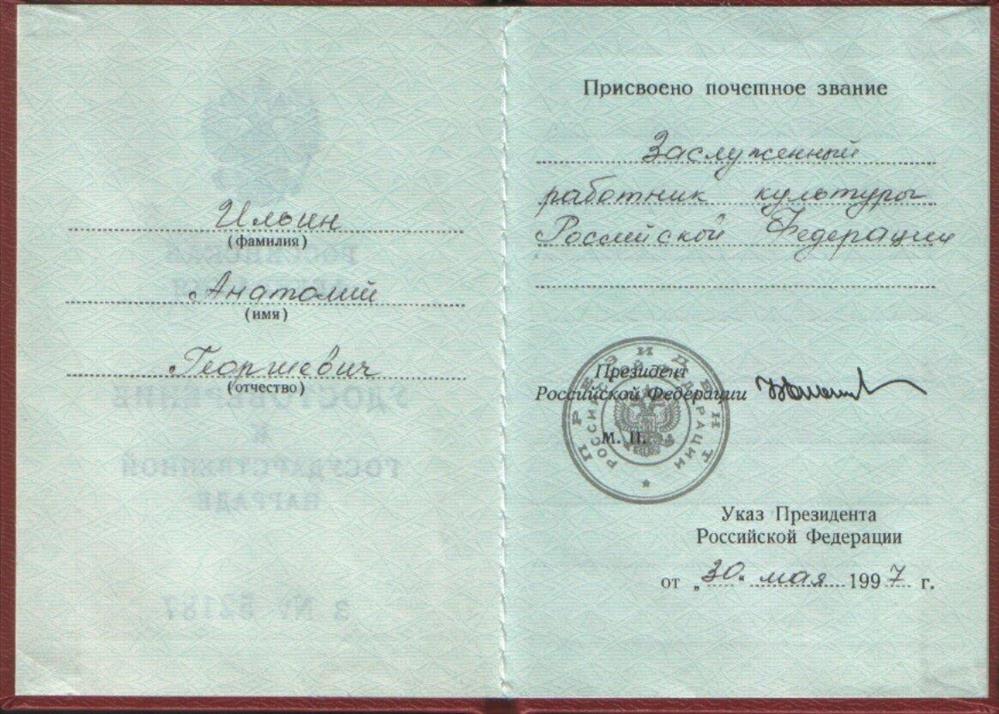 Ильин
(фамилия)
Анатолий
(имя)
Георгиевич
(отчество)
Присвоено почетное звание
Заслуженный
работник культуры
Российской Федерации
Президент
Российской Федерации
М. П.
ПРЕЗИДЕНТ
РОССИЙСКОЙ ФЕДЕРАЦИИ
Указ Президента
Российской Федерации
от „30“ мая 1997 г.
РОССИЙСКАЯ
УДОСТОВЕРЕНИЕ
К
ГОСУДАРСТВЕННОЙ
НАГРАДЕ
З № 52187